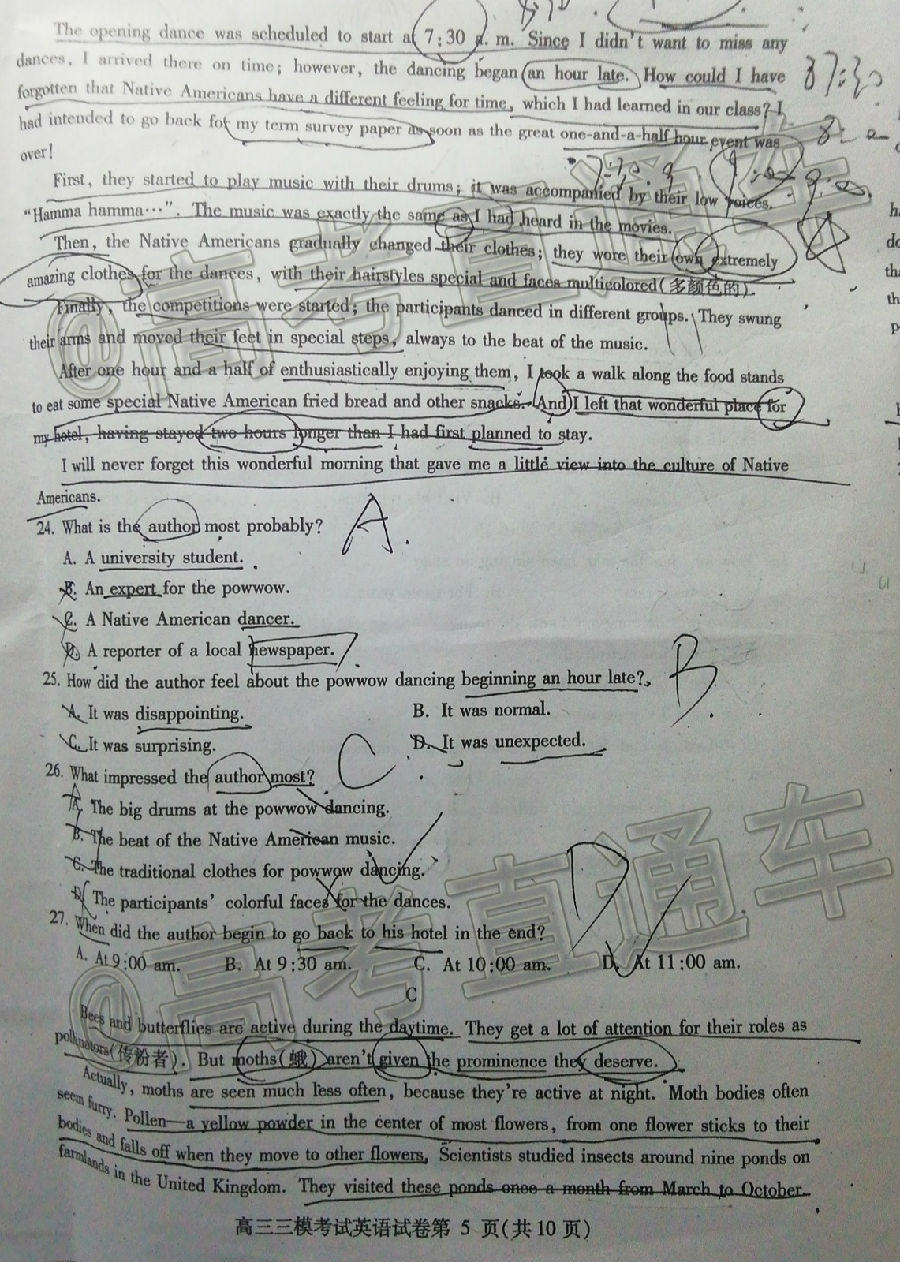 The opening dance was scheduled to start at 7:30 a. m. Since I didn't want to miss any
dances, I arrived there on time; however, the dancing began an hour late. How could I have
forgotten that Native Americans have a different feeling for time, which I had learned in our class? I
had intended to go back for my term survey paper as soon as the great one-and-a-half hour event was
over!
First, they started to play music with their drums; it was accompanied by their low voices.
"Hamma hamma…". The music was exactly the same as I had heard in the movies.
Then, the Native Americans gradually changed their clothes; they wore their own extremely
amazing clothes for the dances, with their hairstyles special and faces multicolored(多颜色的).
Finally, the competitions were started; the participants danced in different groups. They swung
their arms and moved their feet in special steps, always to the beat of the music.
After one hour and a half of enthusiastically enjoying them, I took a walk along the food stands
to eat some special Native American fried bread and other snacks. And I left that wonderful place for
my hotel, having stayed two hours longer than I had first planned to stay.
I will never forget this wonderful morning that gave me a little view into the culture of Native
Americans.
24. What is the author most probably?
A.
A. A university student.
B. An expert for the powwow.
C. A Native American dancer.
D. A reporter of a local newspaper.
25. How did the author feel about the powwow dancing beginning an hour late?
B.
A. It was disappointing. B. It was normal.
C. It was surprising. D. It was unexpected.
26. What impressed the author most?
C.
A. The big drums at the powwow dancing.
B. The beat of the Native American music.
C. The traditional clothes for powwow dancing.
D. The participants' colorful faces for the dances.
27. When did the author begin to go back to his hotel in the end?
D
A. At 9:00 am. B. At 9:30 am. C. At 10:00 am. D. At 11:00 am.
C
Bees and butterflies are active during the daytime. They get a lot of attention for their roles as
pollinators(传粉者). But moths(蛾) aren't given the prominence they deserve.
Actually, moths are seen much less often, because they're active at night. Moth bodies often
seem furry. Pollen—a yellow powder in the center of most flowers, from one flower sticks to their
bodies and falls off when they move to other flowers. Scientists studied insects around nine ponds on
farmlands in the United Kingdom. They visited these ponds once a month from March to October.
高三三模考试英语试卷第 5 页(共10页)
@高考直通车
@高考直通车